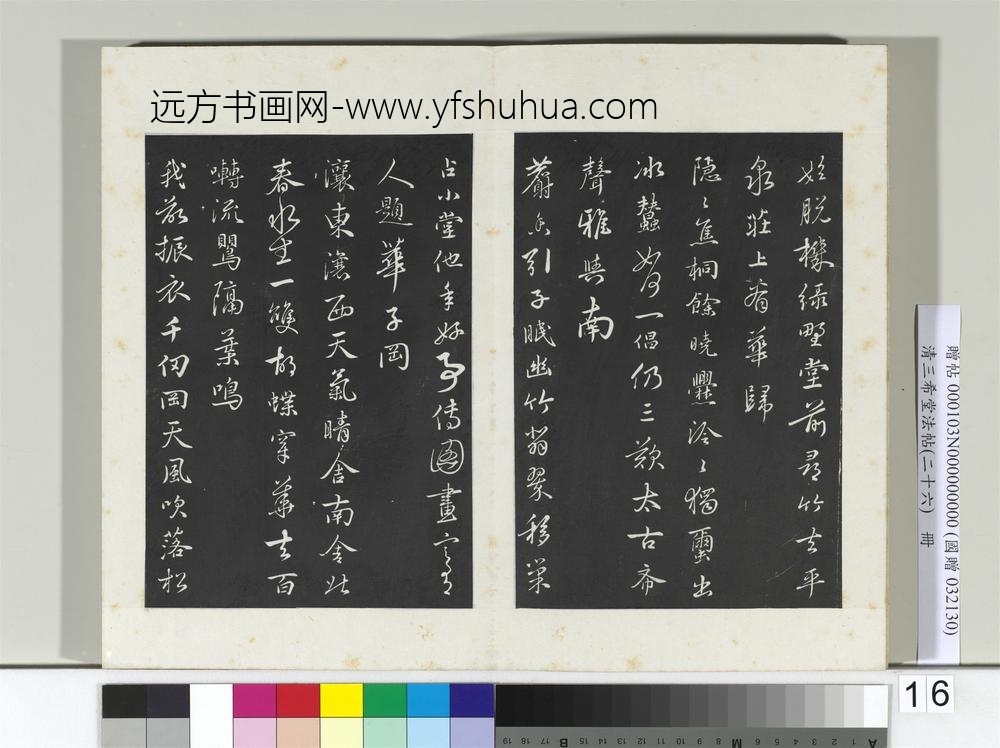 远方书画网-www.yfshuhua.com
脱 绿野堂前寻竹去平
泉莊上看華歸
隐〻焦桐餘曉爨泠〻獨璽出
冰蠶 一倡仍三歎太古 
聲雅與南
麝 引子眠幽竹翡翠移巢
占小堂他年好事传圖畫 
人題華子岡
瀼東瀼西天氣晴舍南舍北
春水生一雙胡蝶穿華去百
囀流鶯隔葉鳴
我 振衣千仞岡天風吹落松
贈帖 000103N000000000 (國贈 032130)
清三希堂法帖(二十六) 冊
16